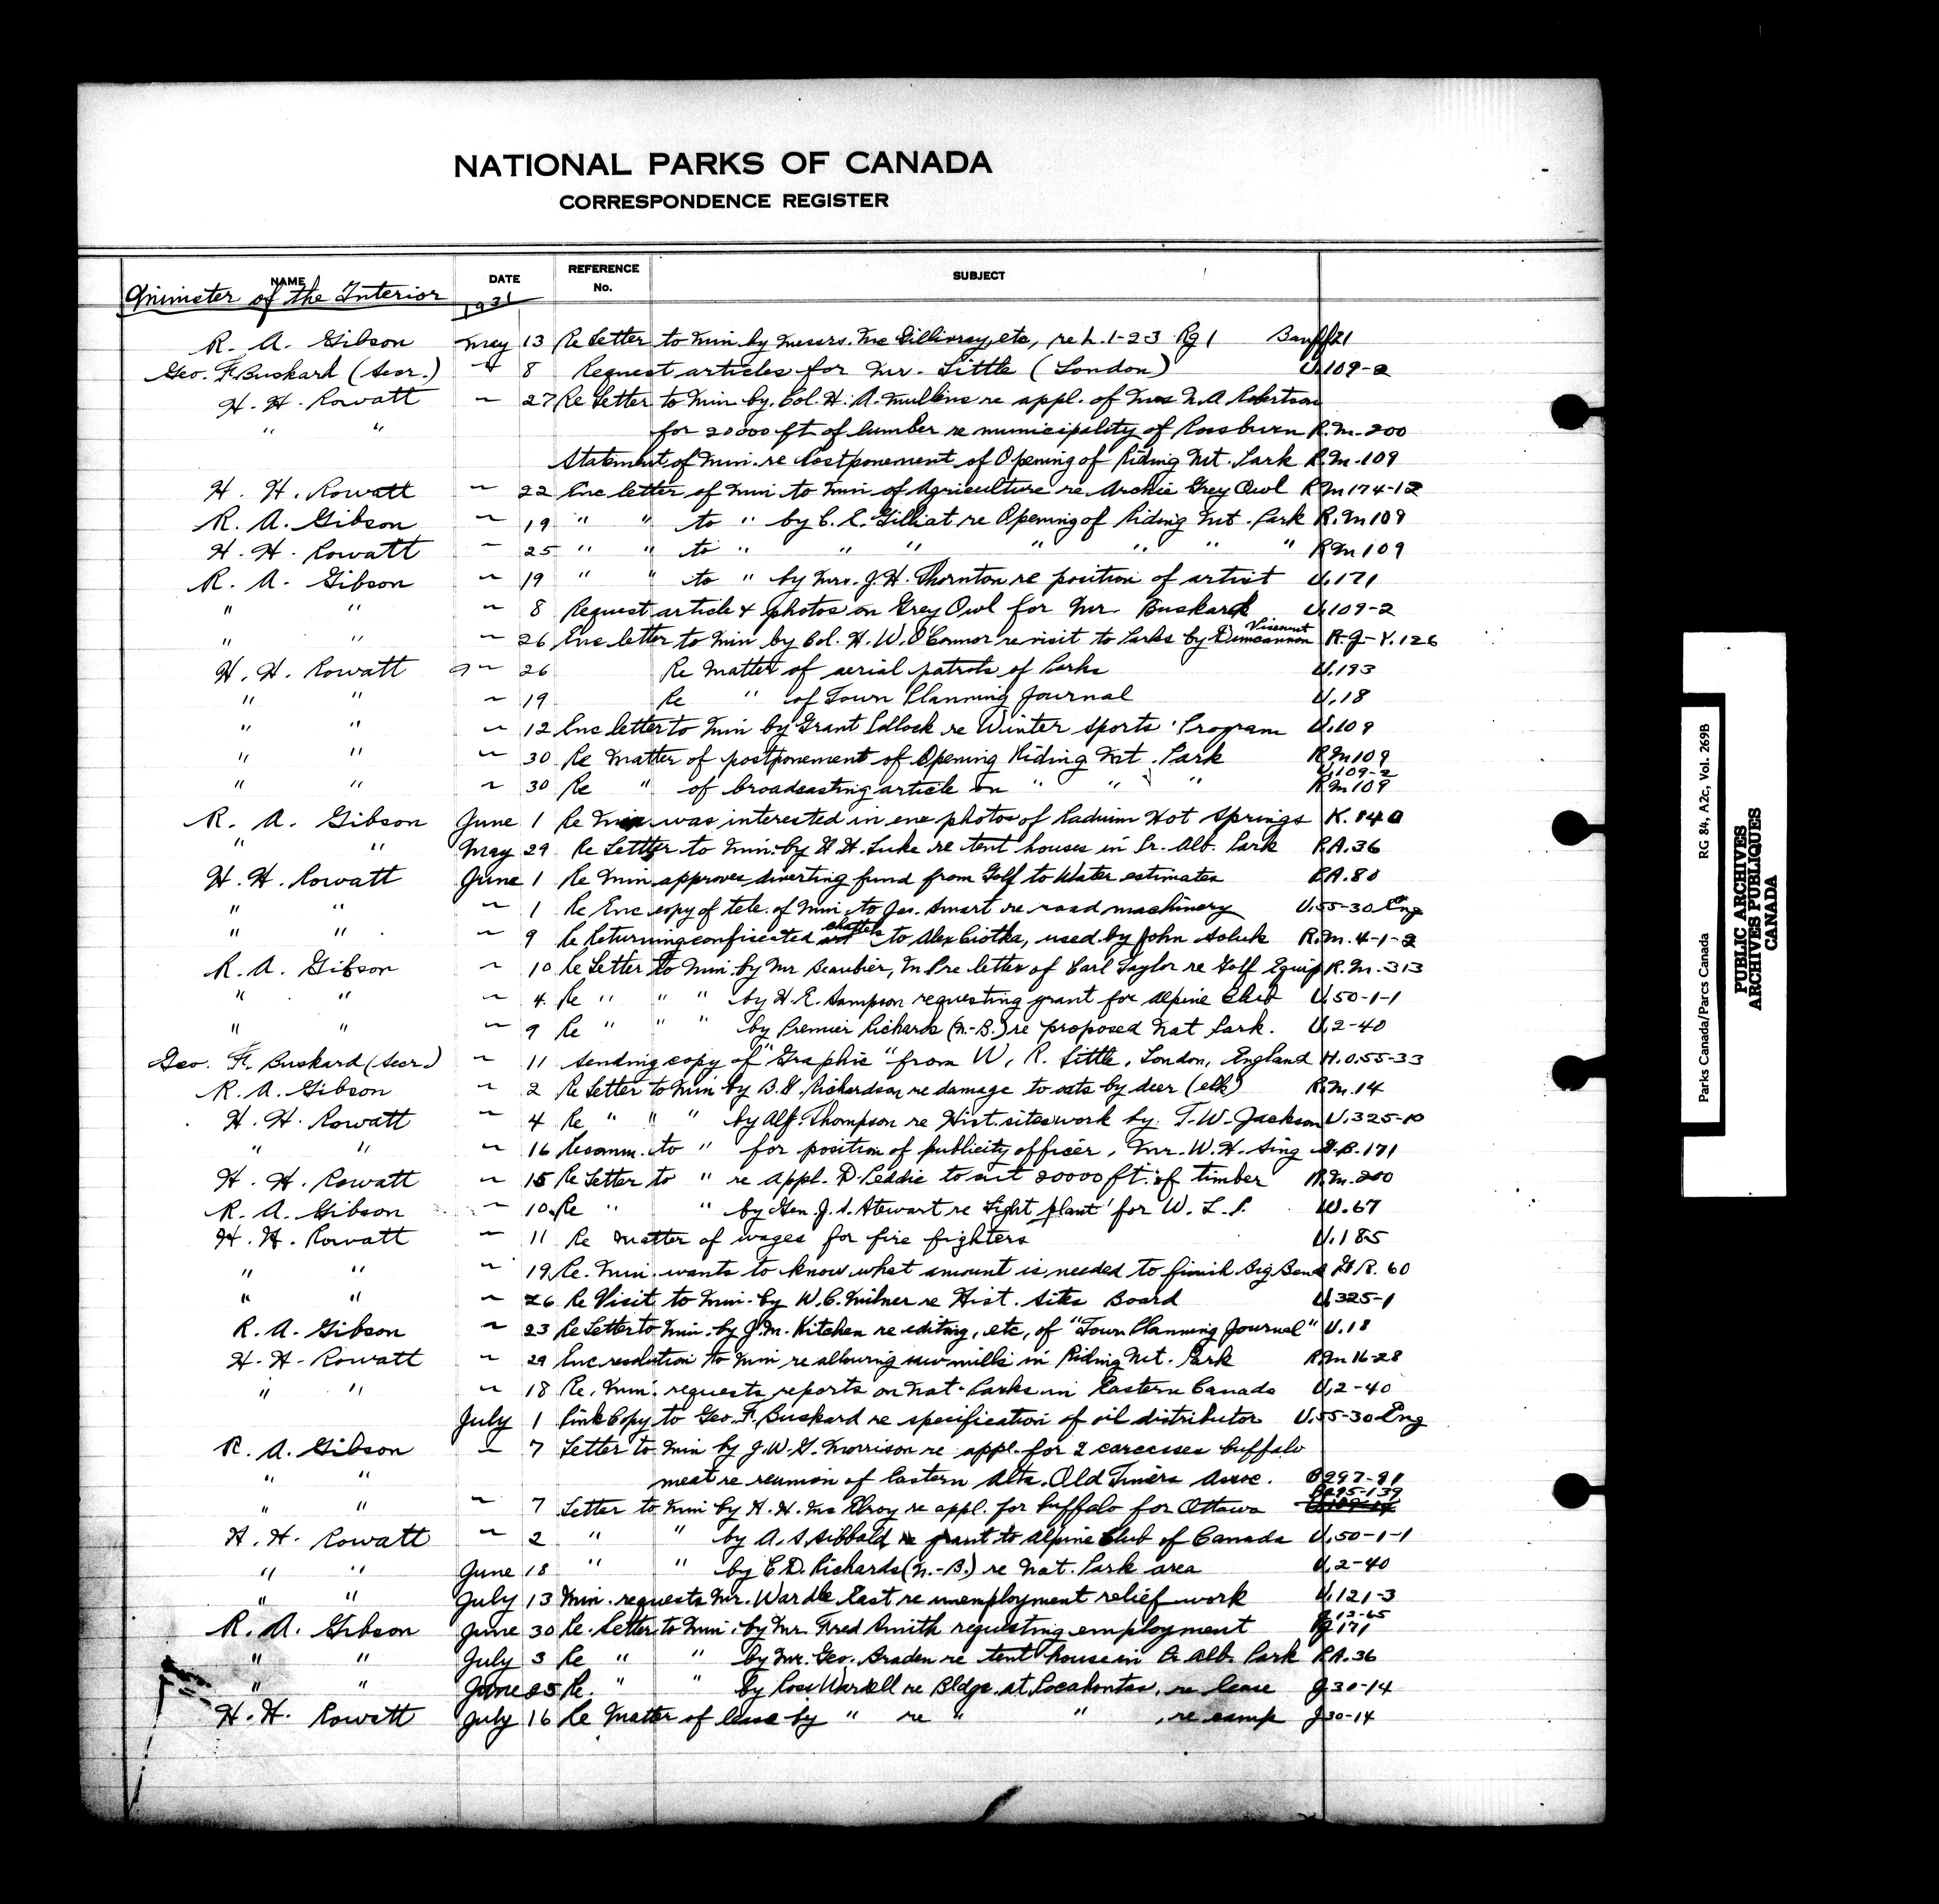 NATIONAL PARKS OF CANADA
CORRESPONDENCE REGISTER
NAME DATE REFERENCE No. SUBJECT
Minister of the Interior 1931
R. A. Gibson May 13 Re Letter to Min by Messrs. McGillivray, etc, re L. 1-2-3 Rg 1 Banff
Geo. F. Buskard (Secr.) " 8 Request articles for Mr. Little (London) U.109-2
H. H. Rowatt " 27 Re Letter to Min by Col. H. A. Mullins re appl. of N. A. Robertson
" " for 20000 ft of lumber re municipality of Rossburn R.M.200
Statement of Min. re Postponement of Opening of Riding Mt. Park R.M.109
H. H. Rowatt " 22 Enc letter of Min to Min of Agriculture re Archie Grey Owl R.M 174-12
R. A. Gibson " 19 " " to " by C. E. Gilliat re Opening of Riding Mt. Park R.M 109
H. H. Rowatt " 25 " " to " " " " " " " R M 109
R. A. Gibson " 19 " " to " by Mrs. J. H. Thornton re position of artist U.171
" " " 8 Request article & photos on Grey Owl for Mr. Buskard U.109-2
" " " 26 Enc letter to Min by Col. H. W. O'Connor re visit to Parks by Viscount Duncannon R-J-Y.126
H. H. Rowatt " 26 Re Matter of aerial patrols of Parks U.193
" " " 19 Re " of Town Planning Journal U.18
" " " 12 Enc letter to Min by Grant Pollock re Winter Sports Program U.109
" " " 30 Re Matter of postponement of Opening Riding Mt. Park R M 109
" " " 30 Re " of broadcasting article on " " " U.109-2 R M 109
R. A. Gibson June 1 Re Min was interested in enc photos of Radium Hot Springs K.840
" " May 29 Re Letter to Min. by H. H. Luke re tent houses in Pr. Alb. Park P.A.36
H. H. Rowatt June 1 Re Min approves diverting fund from Golf to Water estimates P.A.80
" " " 1 Re Enc copy of tele. of Min to Jas. Smart re road machinery U.55-30 Eng
" " " 9 Re Returning confiscated chattels to Alex Ciotka, used by John Soluk R.M.4-1-2
R. A. Gibson " 10 Re Letter to Min. by Mr Beaubier, M.P. re letter of Carl Taylor re Golf Equip R.M.313
" " " 4 Re " " " by H. E. Sampson requesting grant for Alpine Club U.50-1-1
" " " 9 Re " " " by Premier Richards (N-B.) re proposed Nat Park. U.2-40
Geo. F. Buskard (Secr.) " 11 Sending copy of "Graphic" from W. R. Little, London, England H.O.55-33
R. A. Gibson " 2 Re Letter to Min by B. G. Richardson re damage to oats by deer (elk) R.M.14
H. H. Rowatt " 4 Re " " " by Alf. Thompson re Hist. sites work by T. W. Jackson U.325-10
" " " 16 Recomm. to " for position of publicity officer, Mr. W. H. Sing 171
H. H. Rowatt " 15 Re Letter to " re Appl. D. Peddie to cut 20000 ft. of timber R.M.200
R. A. Gibson " 10 Re " " by Gen. J. S. Stewart re Light plant for W. L. P. W.67
H. H. Rowatt " 11 Re Matter of wages for fire fighters U.185
" " " 19 Re. Min. wants to know what amount is needed to finish Big Bend R.60
" " " 26 Re Visit to Min. by W. C. Milner re Hist. Sites Board U.325-1
R. A. Gibson " 23 Re Letter to Min. by J. M. Kitchen re editing, etc, of "Town Planning Journal" U.18
H. H. Rowatt " 29 Enc resolution to Min re allowing saw mills in Riding Mt. Park R M 16-28
" " " 18 Re. Min. requests reports on Nat. Parks in Eastern Canada U.2-40
July 1 Pink Copy to Geo. F. Buskard re specification of oil distributor U.55-30 Eng
R. A. Gibson " 7 Letter to Min by J. W. G. Morrison re appl. for 2 carcasses buffalo
" " meat re reunion of Eastern Alta. Old Timers Assoc. B 297-91
" " " 7 Letter to Min by H. H. McElroy re appl. for buffalo for Ottawa 139
H. H. Rowatt " 2 " " by A. S. Sibbald re grant to Alpine Club of Canada U.50-1-1
" " June 18 " " by C. D. Richards (N.-B.) re Nat. Park area U.2-40
" " July 13 Min. requests Mr. Wardle East re unemployment relief work U.121-3
R. A. Gibson June 30 Re. Letter to Min. by Mr. Fred Smith requesting employment J 13-65 J 171
" " July 3 Re " " by Mr. Geo. Braden re tent house in Pr. Alb. Park P.A.36
" " June 25 Re. " " by Ross Wardell re Bldgs. at Pocahontas, re lease J 30-14
H. H. Rowatt July 16 Re Matter of lease by " re " " , re camp J 30-14
Parks Canada/Parcs Canada RG 84, A2c, Vol. 269B
PUBLIC ARCHIVES
ARCHIVES PUBLIQUES
CANADA